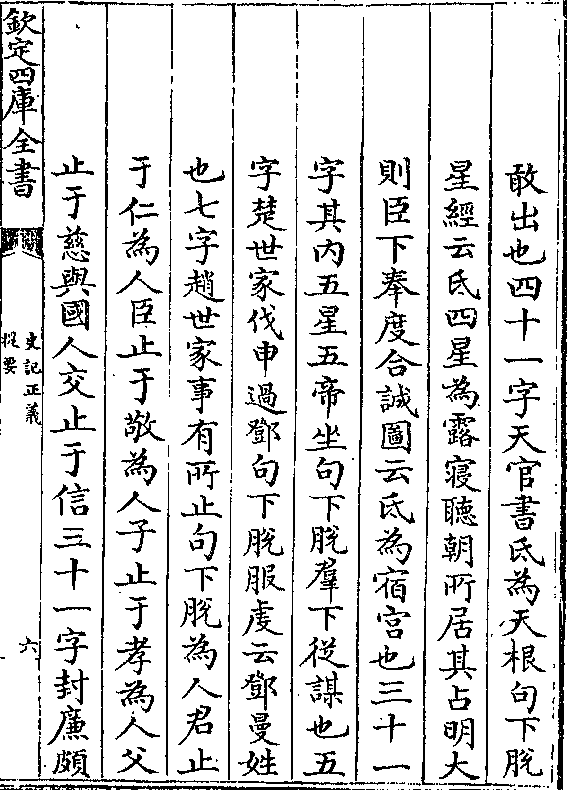 敢出也四十一字天官書氐為天根句下脫
星經云氐四星為露寢聽朝所居其占明大
則臣下奉度合誠圖云氐為宿宮也三十一
字其内五星五帝坐句下脫羣下從謀也五
字楚世家伐申過鄧句下脫服虔云鄧曼姓
也七字趙世家事有所止句下脫為人君止
于仁為人臣止于敬為人子止于孝為人父
止于慈與國人交止于信三十一字封廉頗
欽定四庫全書
史記正義
提要
六